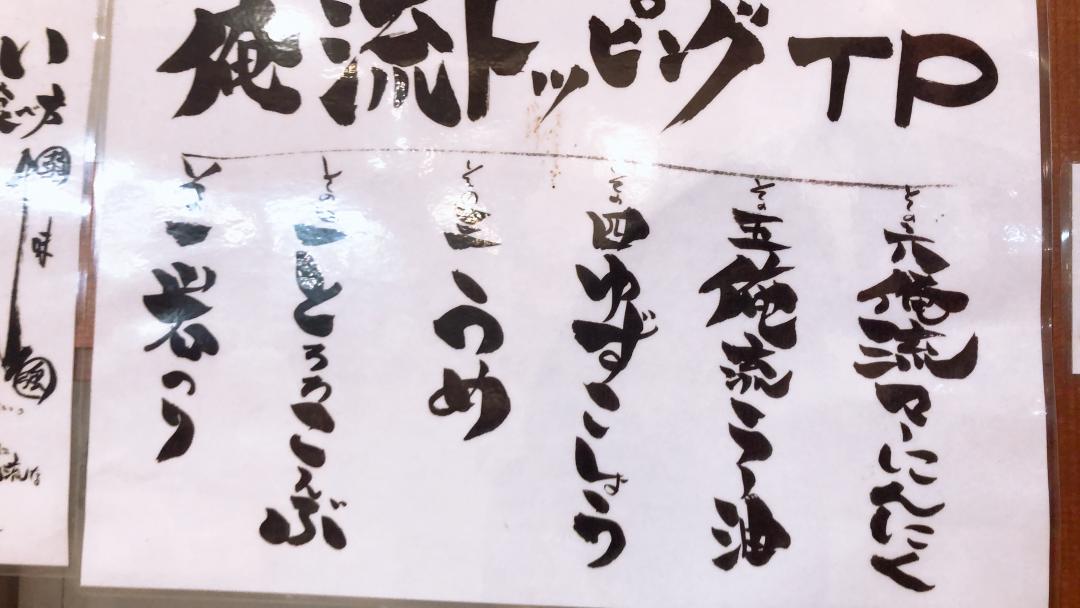 俺流トッピングTP
その一岩のり
その二とろろこんぶ
その三うめ
その四ゆずこしょう
その五俺流らー油
その六俺流マーにんにく